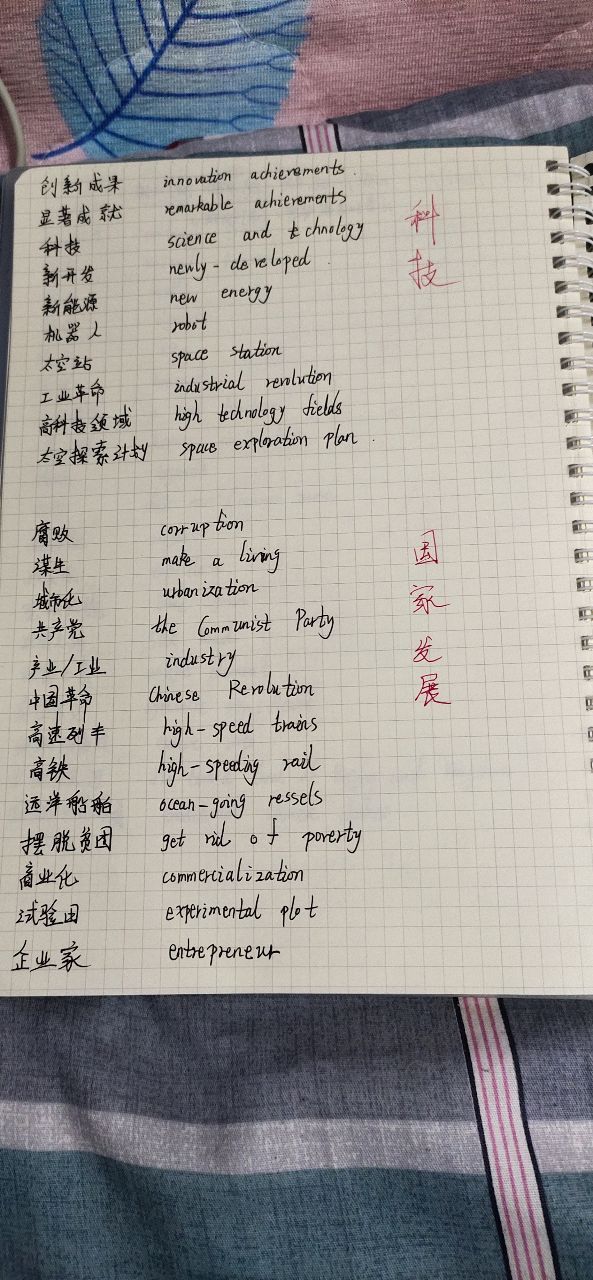 创新成果 innovation achievements.
显著成就 remarkable achievements
科技 science and technology
新开发 newly-developed.
新能源 new energy
机器人 robot
太空站 space station
工业革命 industrial revolution
高科技领域 high technology fields
太空探索计划 space exploration plan.
科技
腐败 corruption
谋生 make a living
城市化 urbanization
共产党 the Communist Party
产业/工业 industry
中国革命 Chinese Revolution
高速列车 high-speed trains
高铁 high-speeding rail
远洋船舶 ocean-going vessels
摆脱贫困 get rid of poverty
商业化 commercialization
试验田 experimental plot
企业家 entrepreneur
国家发展